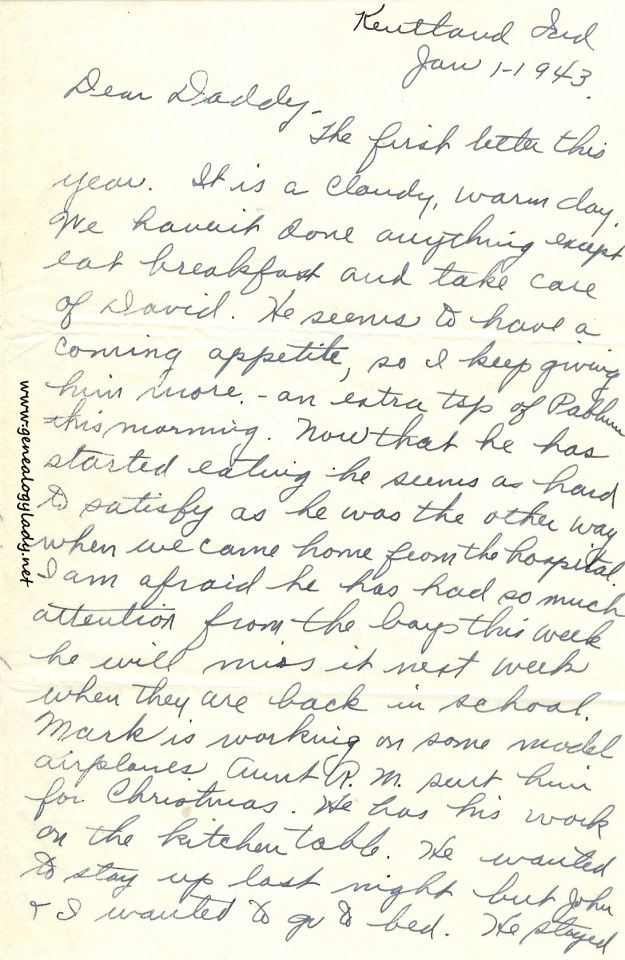 Kentland Ind
Jan 1-1943.
Dear Daddy-
The first letter this
year. It is a cloudy, warm day.
We haven't done anything except
eat breakfast and take care
of David. He seems to have a
coming appetite, so I keep giving
him more - an extra tsp of Pablum
this morning. Now that he has
started eating he seems as hard
to satisfy as he was the other way
when we came home from the hospital.
I am afraid he has had so much
attention from the boys this week
he will miss it next week
when they are back in school.
Mark is working on some model
airplanes Aunt R. M. sent him
for Christmas. He has his work
on the kitchen table. He wanted
to stay up last night but John
& I wanted to go to bed. He stayed
www.genealogylady.net